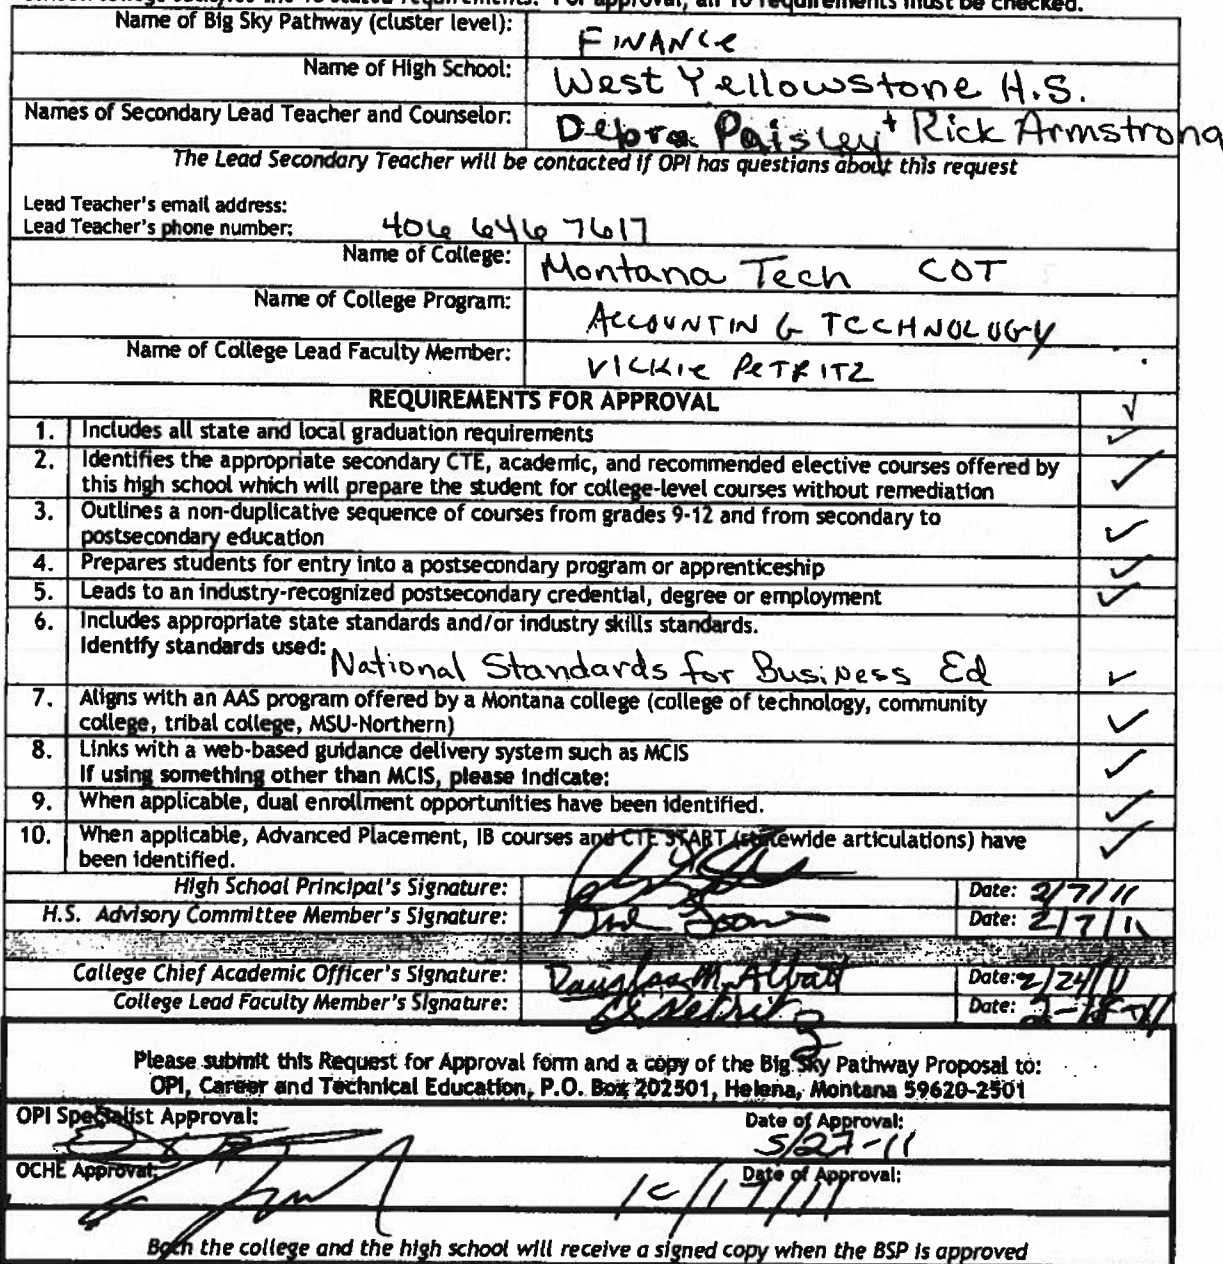 For approval, all 10 requirements must be checked.
Name of Big Sky Pathway (cluster level): FINANCE
Name of High School: West Yellowstone H.S.
Names of Secondary Lead Teacher and Counselor: Debra Paisley + Rick Armstrong
The Lead Secondary Teacher will be contacted if OPI has questions about this request
Lead Teacher's email address:
Lead Teacher's phone number: 406 646 7617
Name of College: Montana Tech COT
Name of College Program: ACCOUNTING TECHNOLOGY
Name of College Lead Faculty Member: VICKIE PETRITZ
REQUIREMENTS FOR APPROVAL √
1. Includes all state and local graduation requirements ✓
2. Identifies the appropriate secondary CTE, academic, and recommended elective courses offered by
this high school which will prepare the student for college-level courses without remediation ✓
3. Outlines a non-duplicative sequence of courses from grades 9-12 and from secondary to
postsecondary education ✓
4. Prepares students for entry into a postsecondary program or apprenticeship ✓
5. Leads to an industry-recognized postsecondary credential, degree or employment ✓
6. Includes appropriate state standards and/or industry skills standards.
Identify standards used: National Standards for Business Ed ✓
7. Aligns with an AAS program offered by a Montana college (college of technology, community
college, tribal college, MSU-Northern) ✓
8. Links with a web-based guidance delivery system such as MCIS
If using something other than MCIS, please indicate: ✓
9. When applicable, dual enrollment opportunities have been identified. ✓
10. When applicable, Advanced Placement, IB courses and CTE START (statewide articulations) have
been identified. ✓
High School Principal's Signature: Date: 2/7/11
H.S. Advisory Committee Member's Signature: Date: 2/7/11
College Chief Academic Officer's Signature: Douglas M. Date: 2/24/11
College Lead Faculty Member's Signature: Date:
Please submit this Request for Approval form and a copy of the Big Sky Pathway Proposal to:
OPI, Career and Technical Education, P.O. Box 202501, Helena, Montana 59620-2501
OPI Specialist Approval: Date of Approval:
5/27-11
OCHE Approval: Date of Approval:
Both the college and the high school will receive a signed copy when the BSP is approved